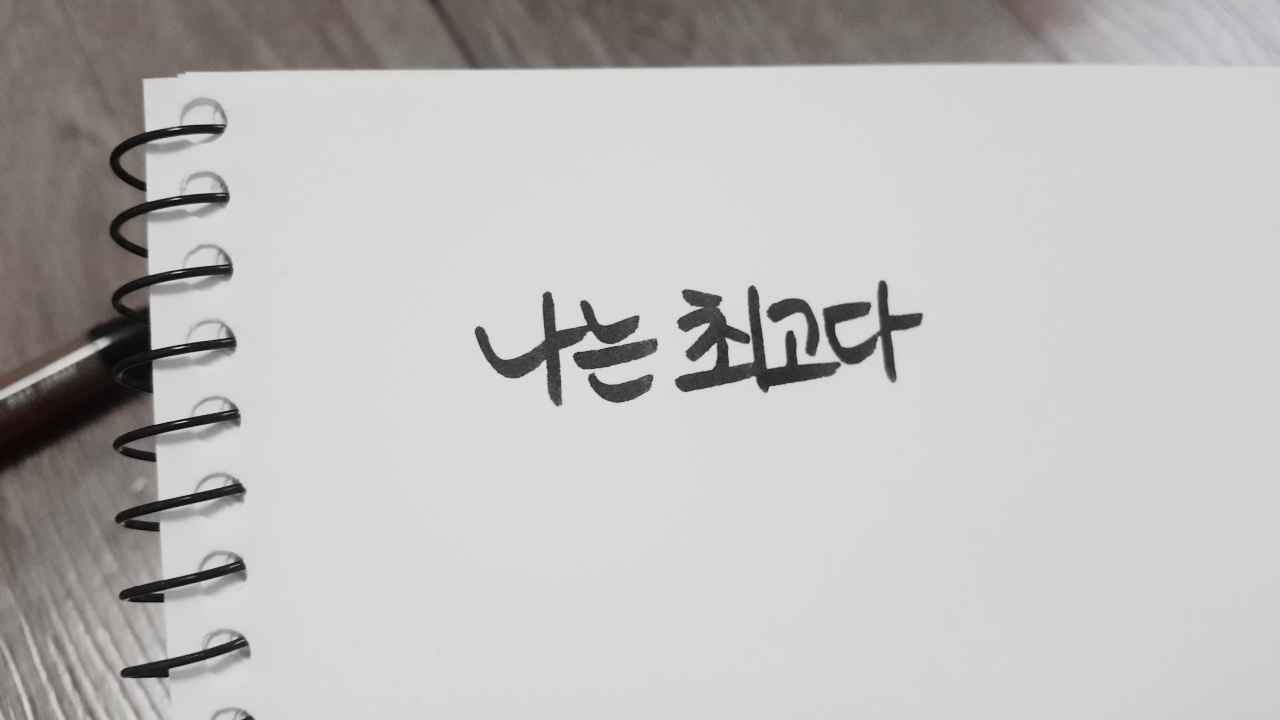 나는 최고다